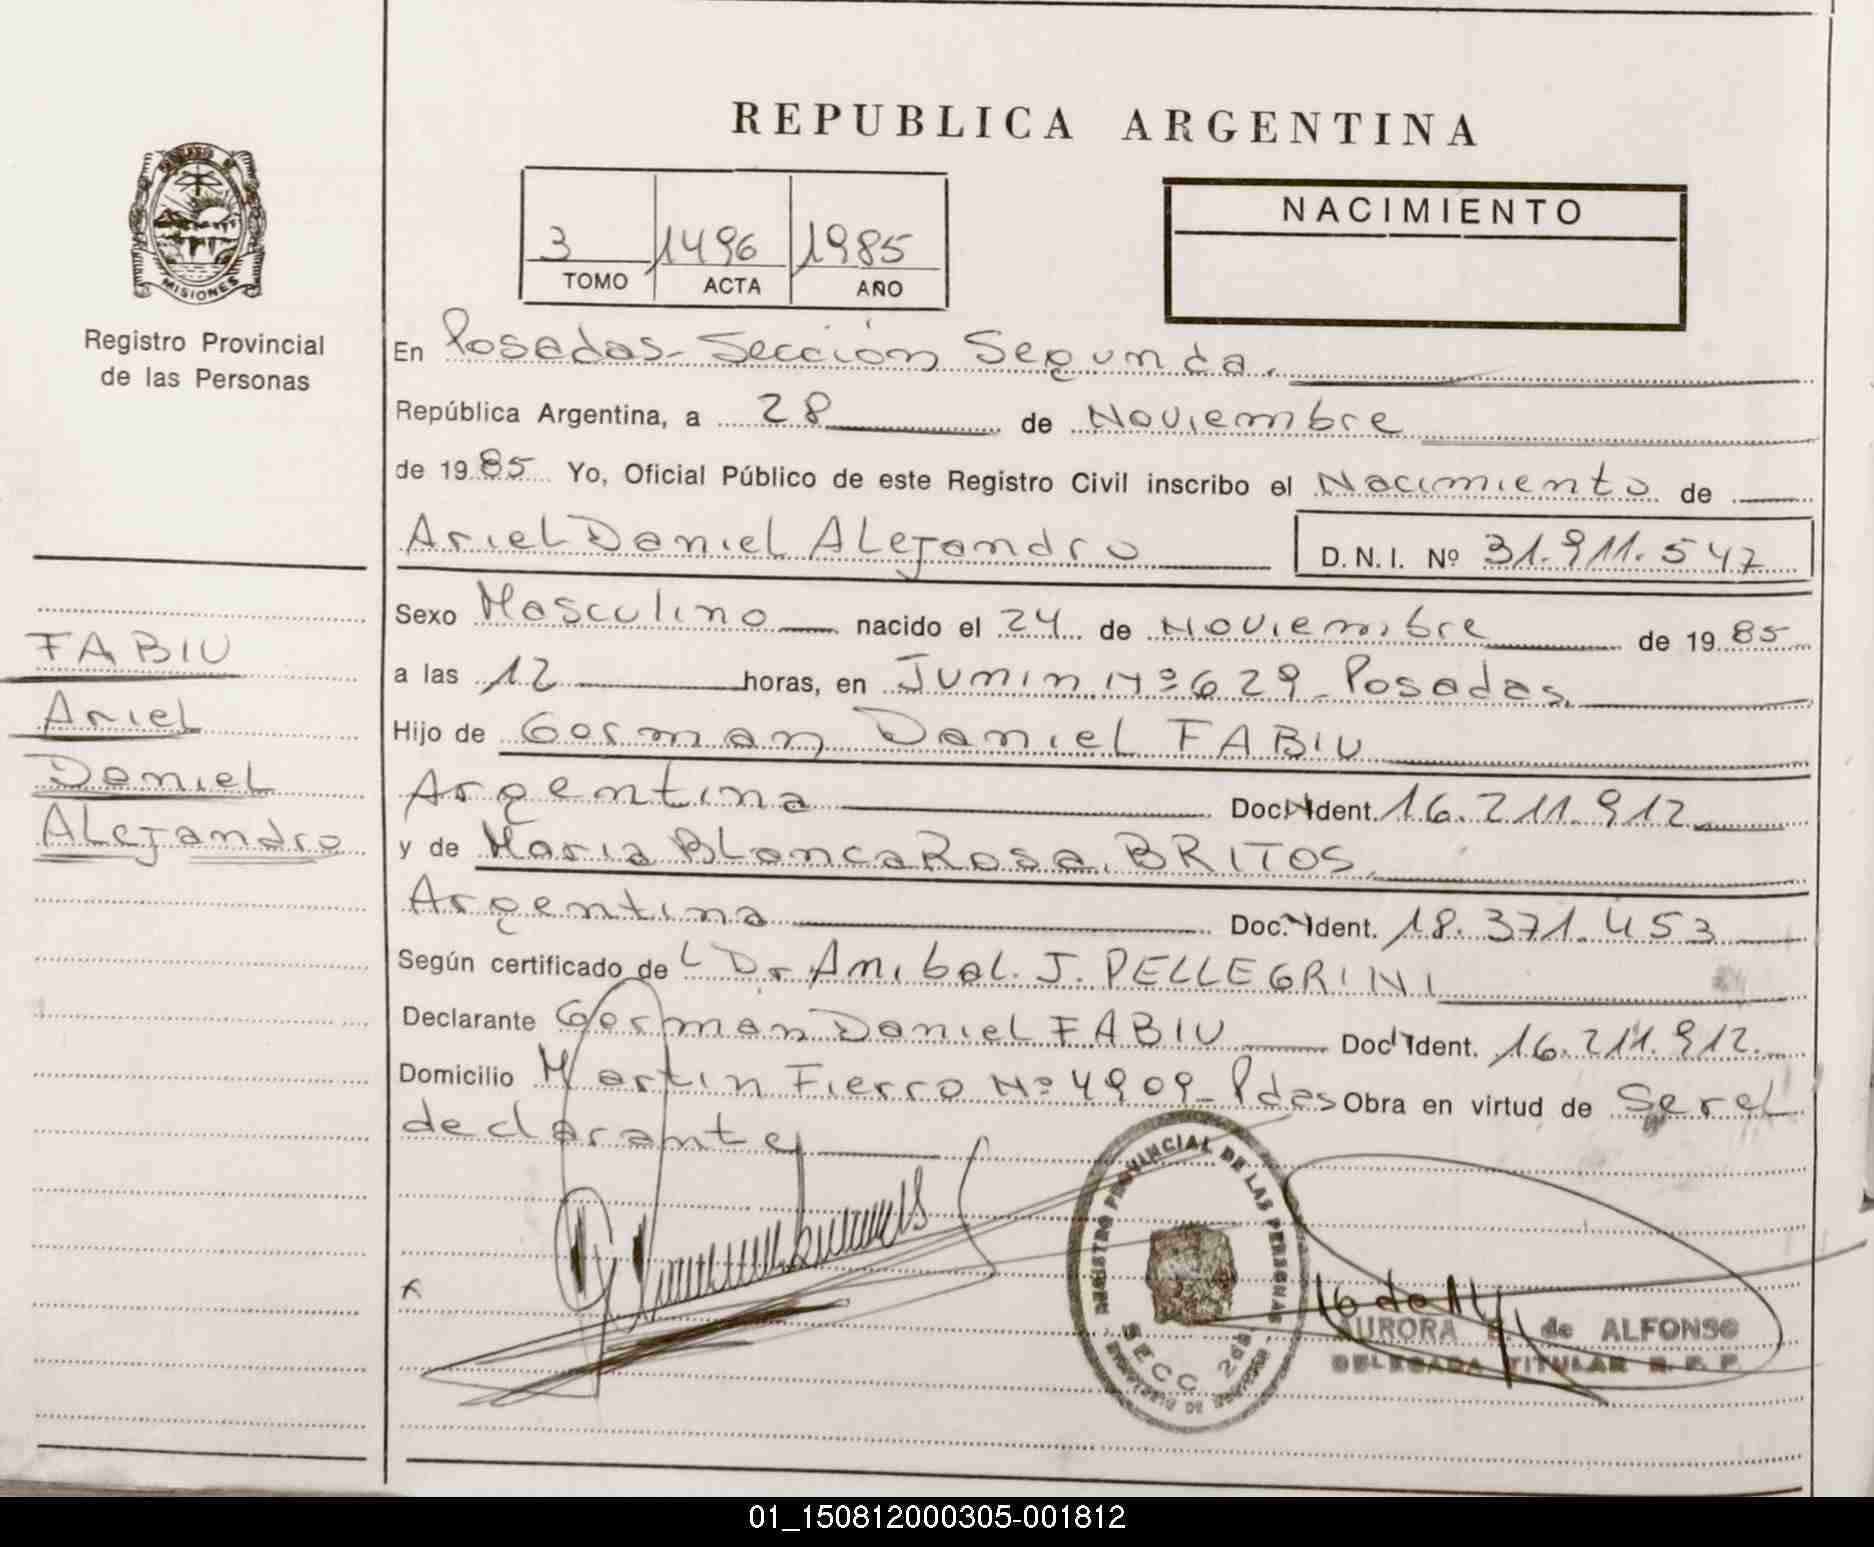 REPUBLICA ARGENTINA
MISIONES
Registro Provincial
de las Personas
3 1496 1985
TOMO ACTA AÑO
NACIMIENTO
En Posadas - Sección Segunda.
República Argentina, a 28 de Noviembre
de 1985 Yo, Oficial Público de este Registro Civil inscribo el Nacimiento de
Ariel Daniel Alejandro D.N.I. Nº 31.911.547
Sexo Masculino nacido el 24 de Noviembre de 1985
a las 12 horas, en Junin Nº 629 - Posadas.
Hijo de German Daniel FABIU
Argentina Doc. Ident. 16.211.912
y de Maria Blanca Rosa BRITOS
Argentina Doc. Ident. 18.371.453
Según certificado de L Dr Anibal. J. PELLEGRINI
Declarante German Daniel FABIU Doc Ident. 16.211.912.
Domicilio Martin Fierro Nº 4909 - Pdas Obra en virtud de Ser el
declarante
FABIU
Ariel
Daniel
Alejandro
REGISTRO PROVINCIAL DE LAS PERSONAS
SECC 2da
AURORA de ALFONSO
DELEGADA TITULAR R. P. P.
01_150812000305-001812